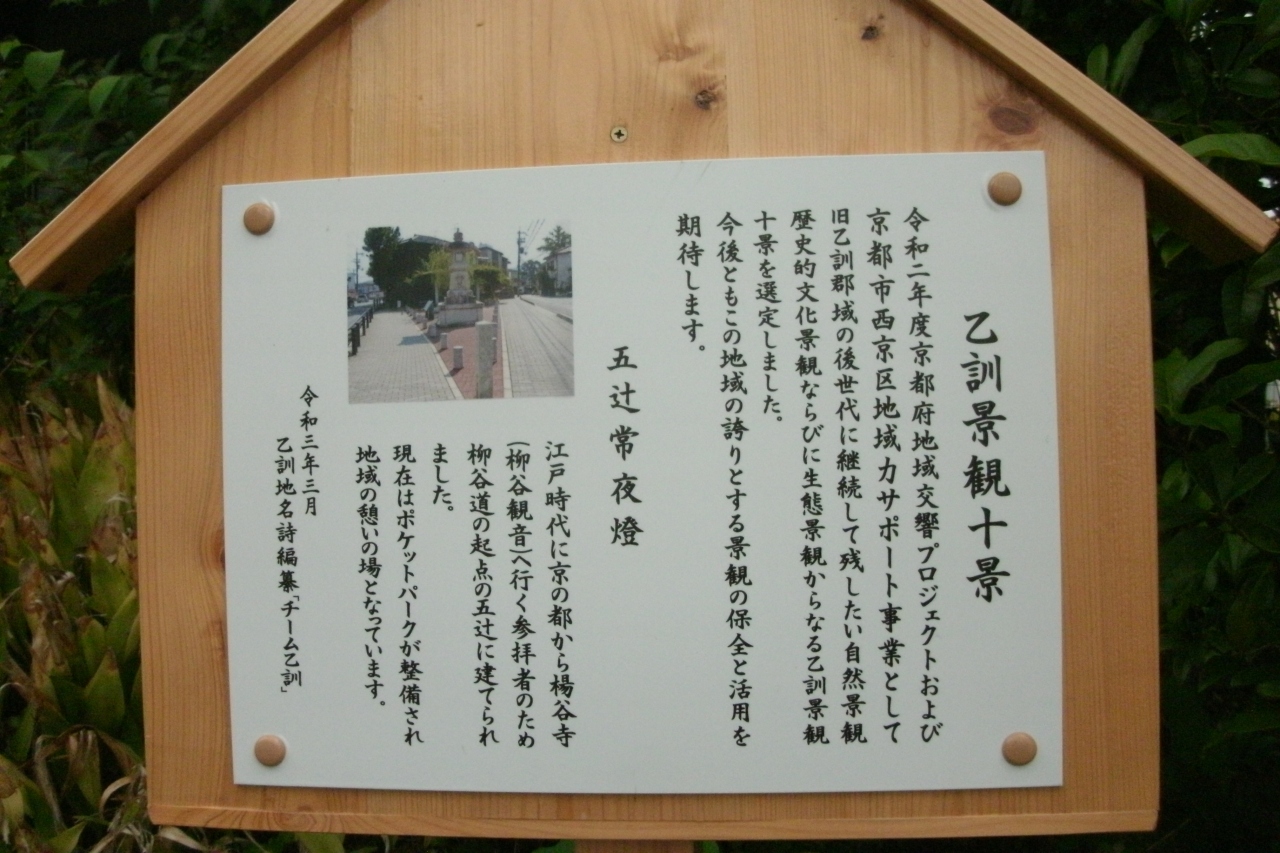 乙訓景観十景
令和二年度京都府地域交響プロジェクトおよび
京都市西京区地域力サポート事業として
旧乙訓郡域の後世代に継続して残したい自然景観
歴史的文化景観ならびに生態景観からなる乙訓景観
十景を選定しました。
今後ともこの地域の誇りとする景観の保全と活用を
期待します。
五辻常夜燈
江戸時代に京の都から楊谷寺
(柳谷観音)へ行く参拝者のため
柳谷道の起点の五辻に建てられ
ました。
現在はポケットパークが整備され
地域の憩いの場となっています。
令和三年三月
乙訓地名詩編纂「チーム乙訓」